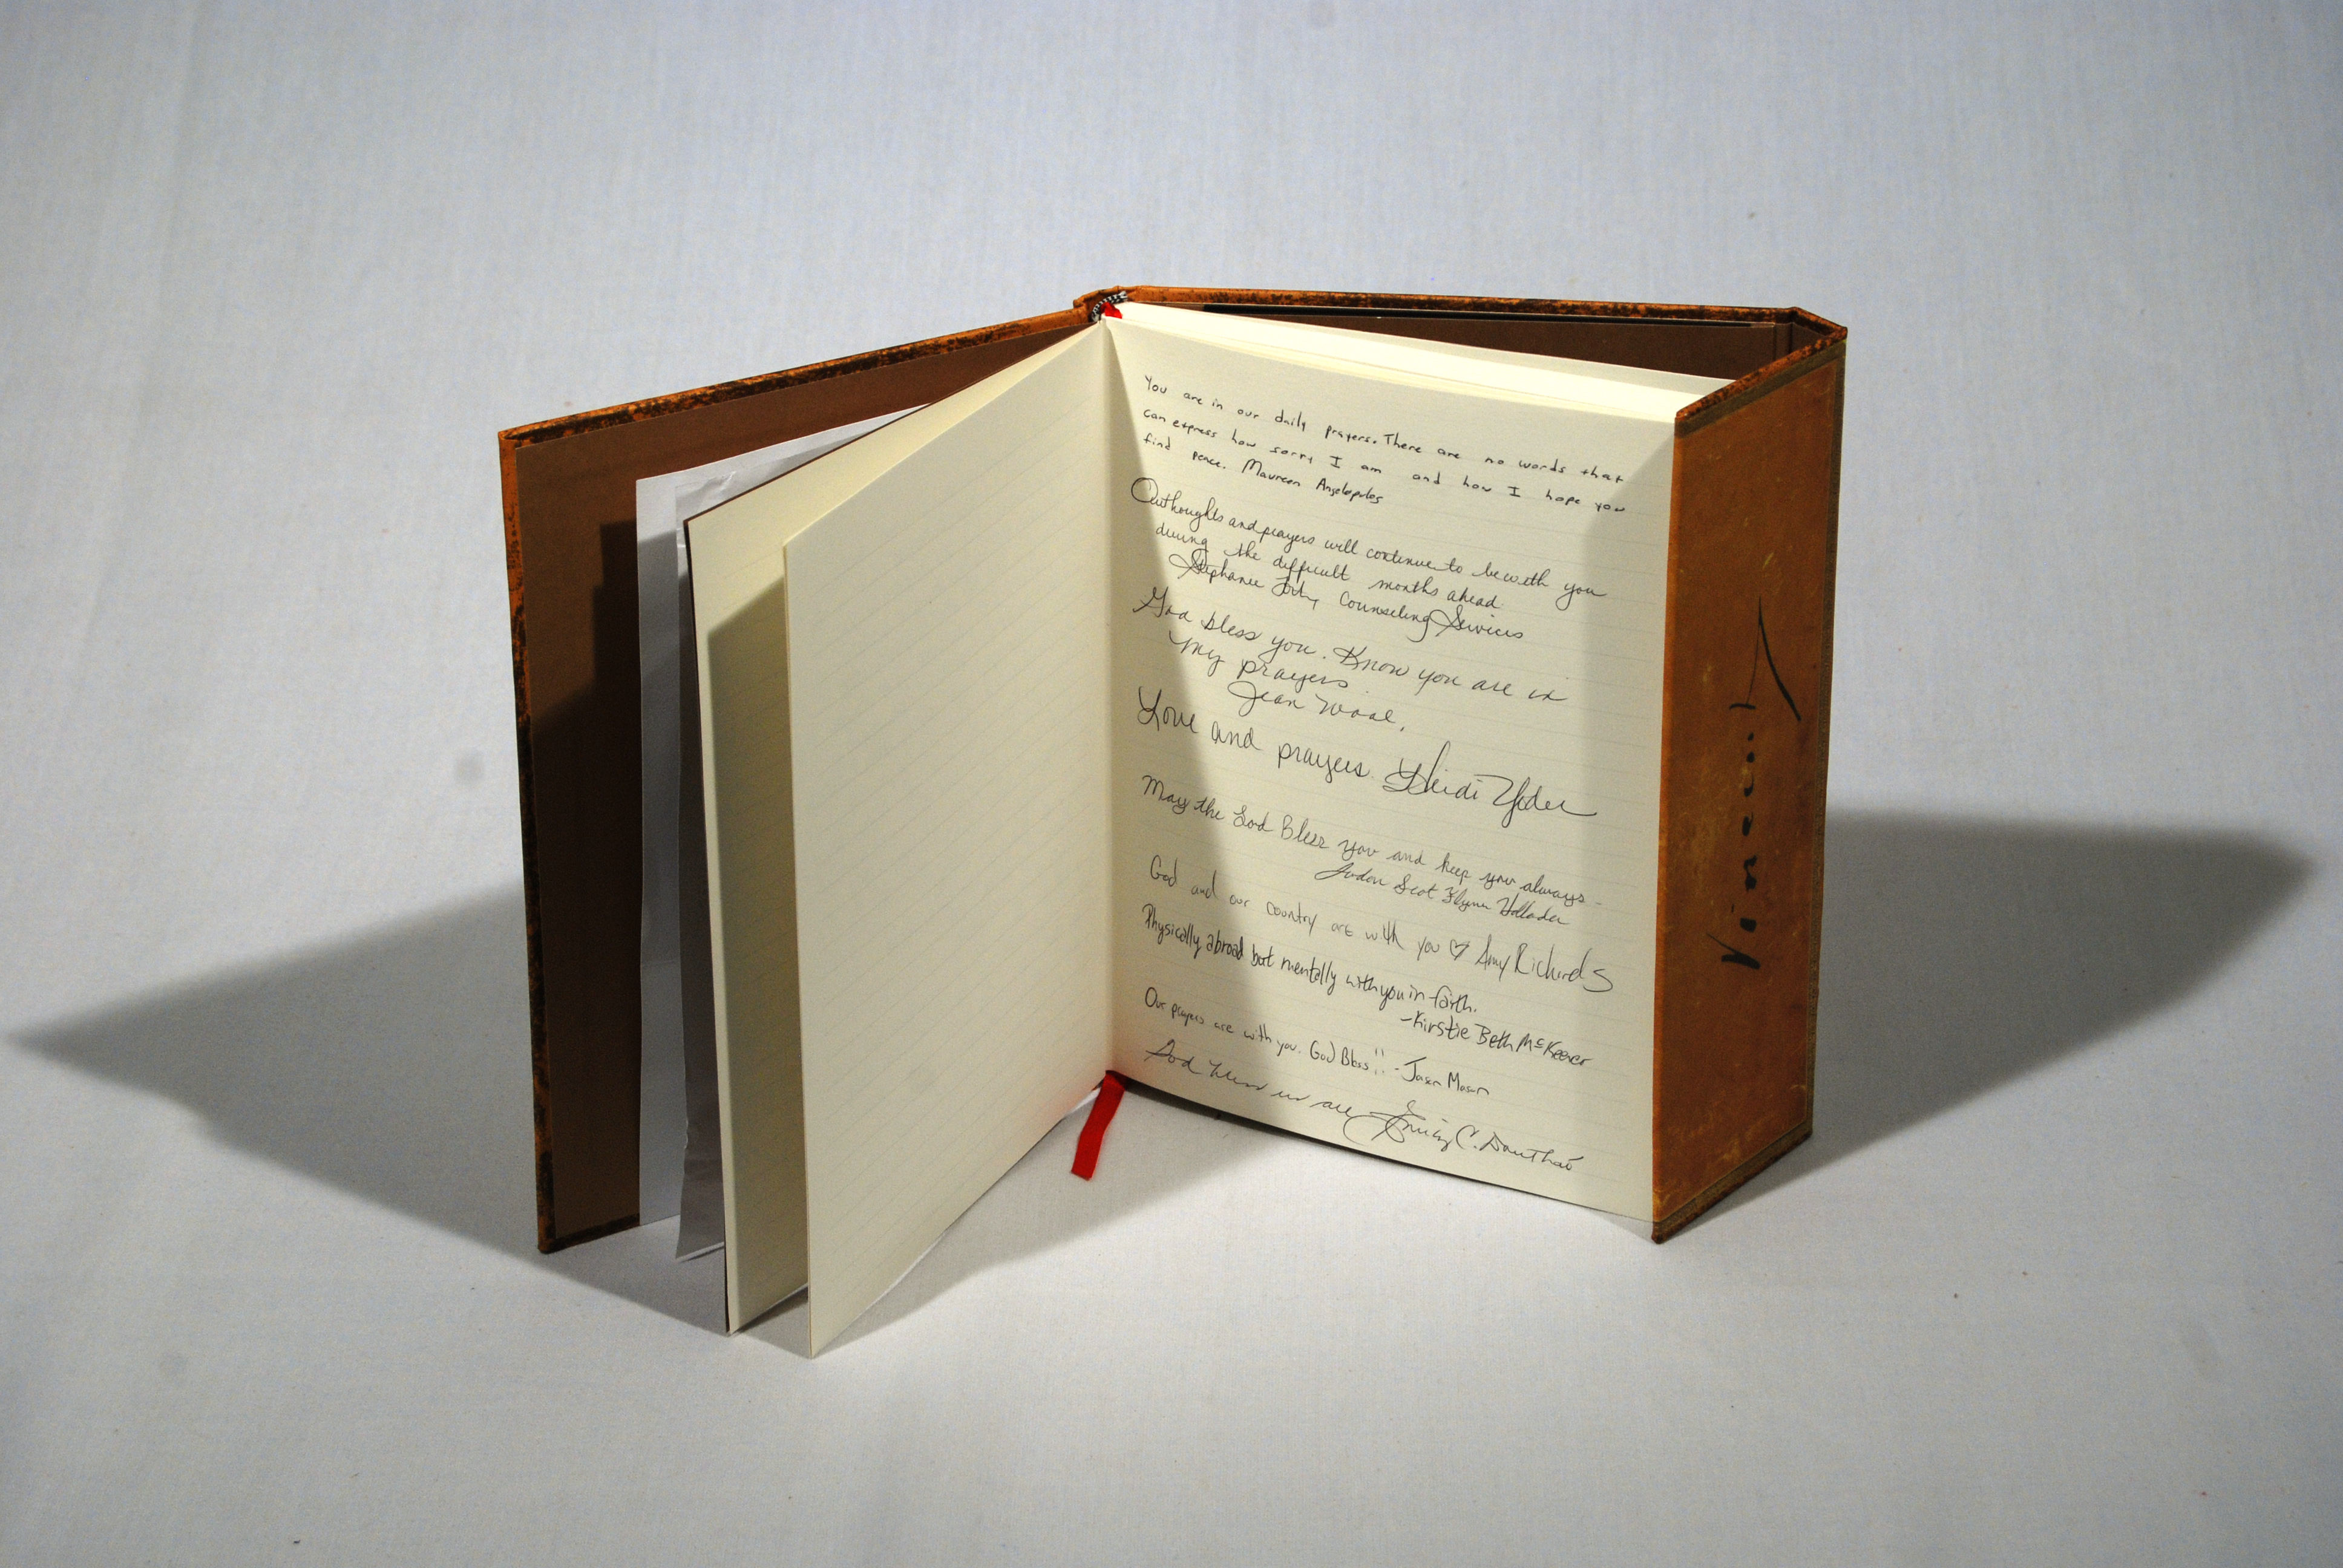 You are in our daily prayers. There are no words that
can express how sorry I am and how I hope you
find peace. Maureen Angelopulos
Our thoughts and prayers will continue to be with you
during the difficult months ahead.
Stephanie Counseling Services
God bless you. Know you are in
my prayers.
Jean
Love and prayers. Heidi Yoder
May the Lord Bless you and keep you always-
Scot
God and our country are with you ♡ Amy Richards
Physically abroad but mentally with you in faith.
-Kirstie Beth McKeever
Our prayers are with you. God Bless!! -Jason Mason
God bless us all Emily C.
Vincent